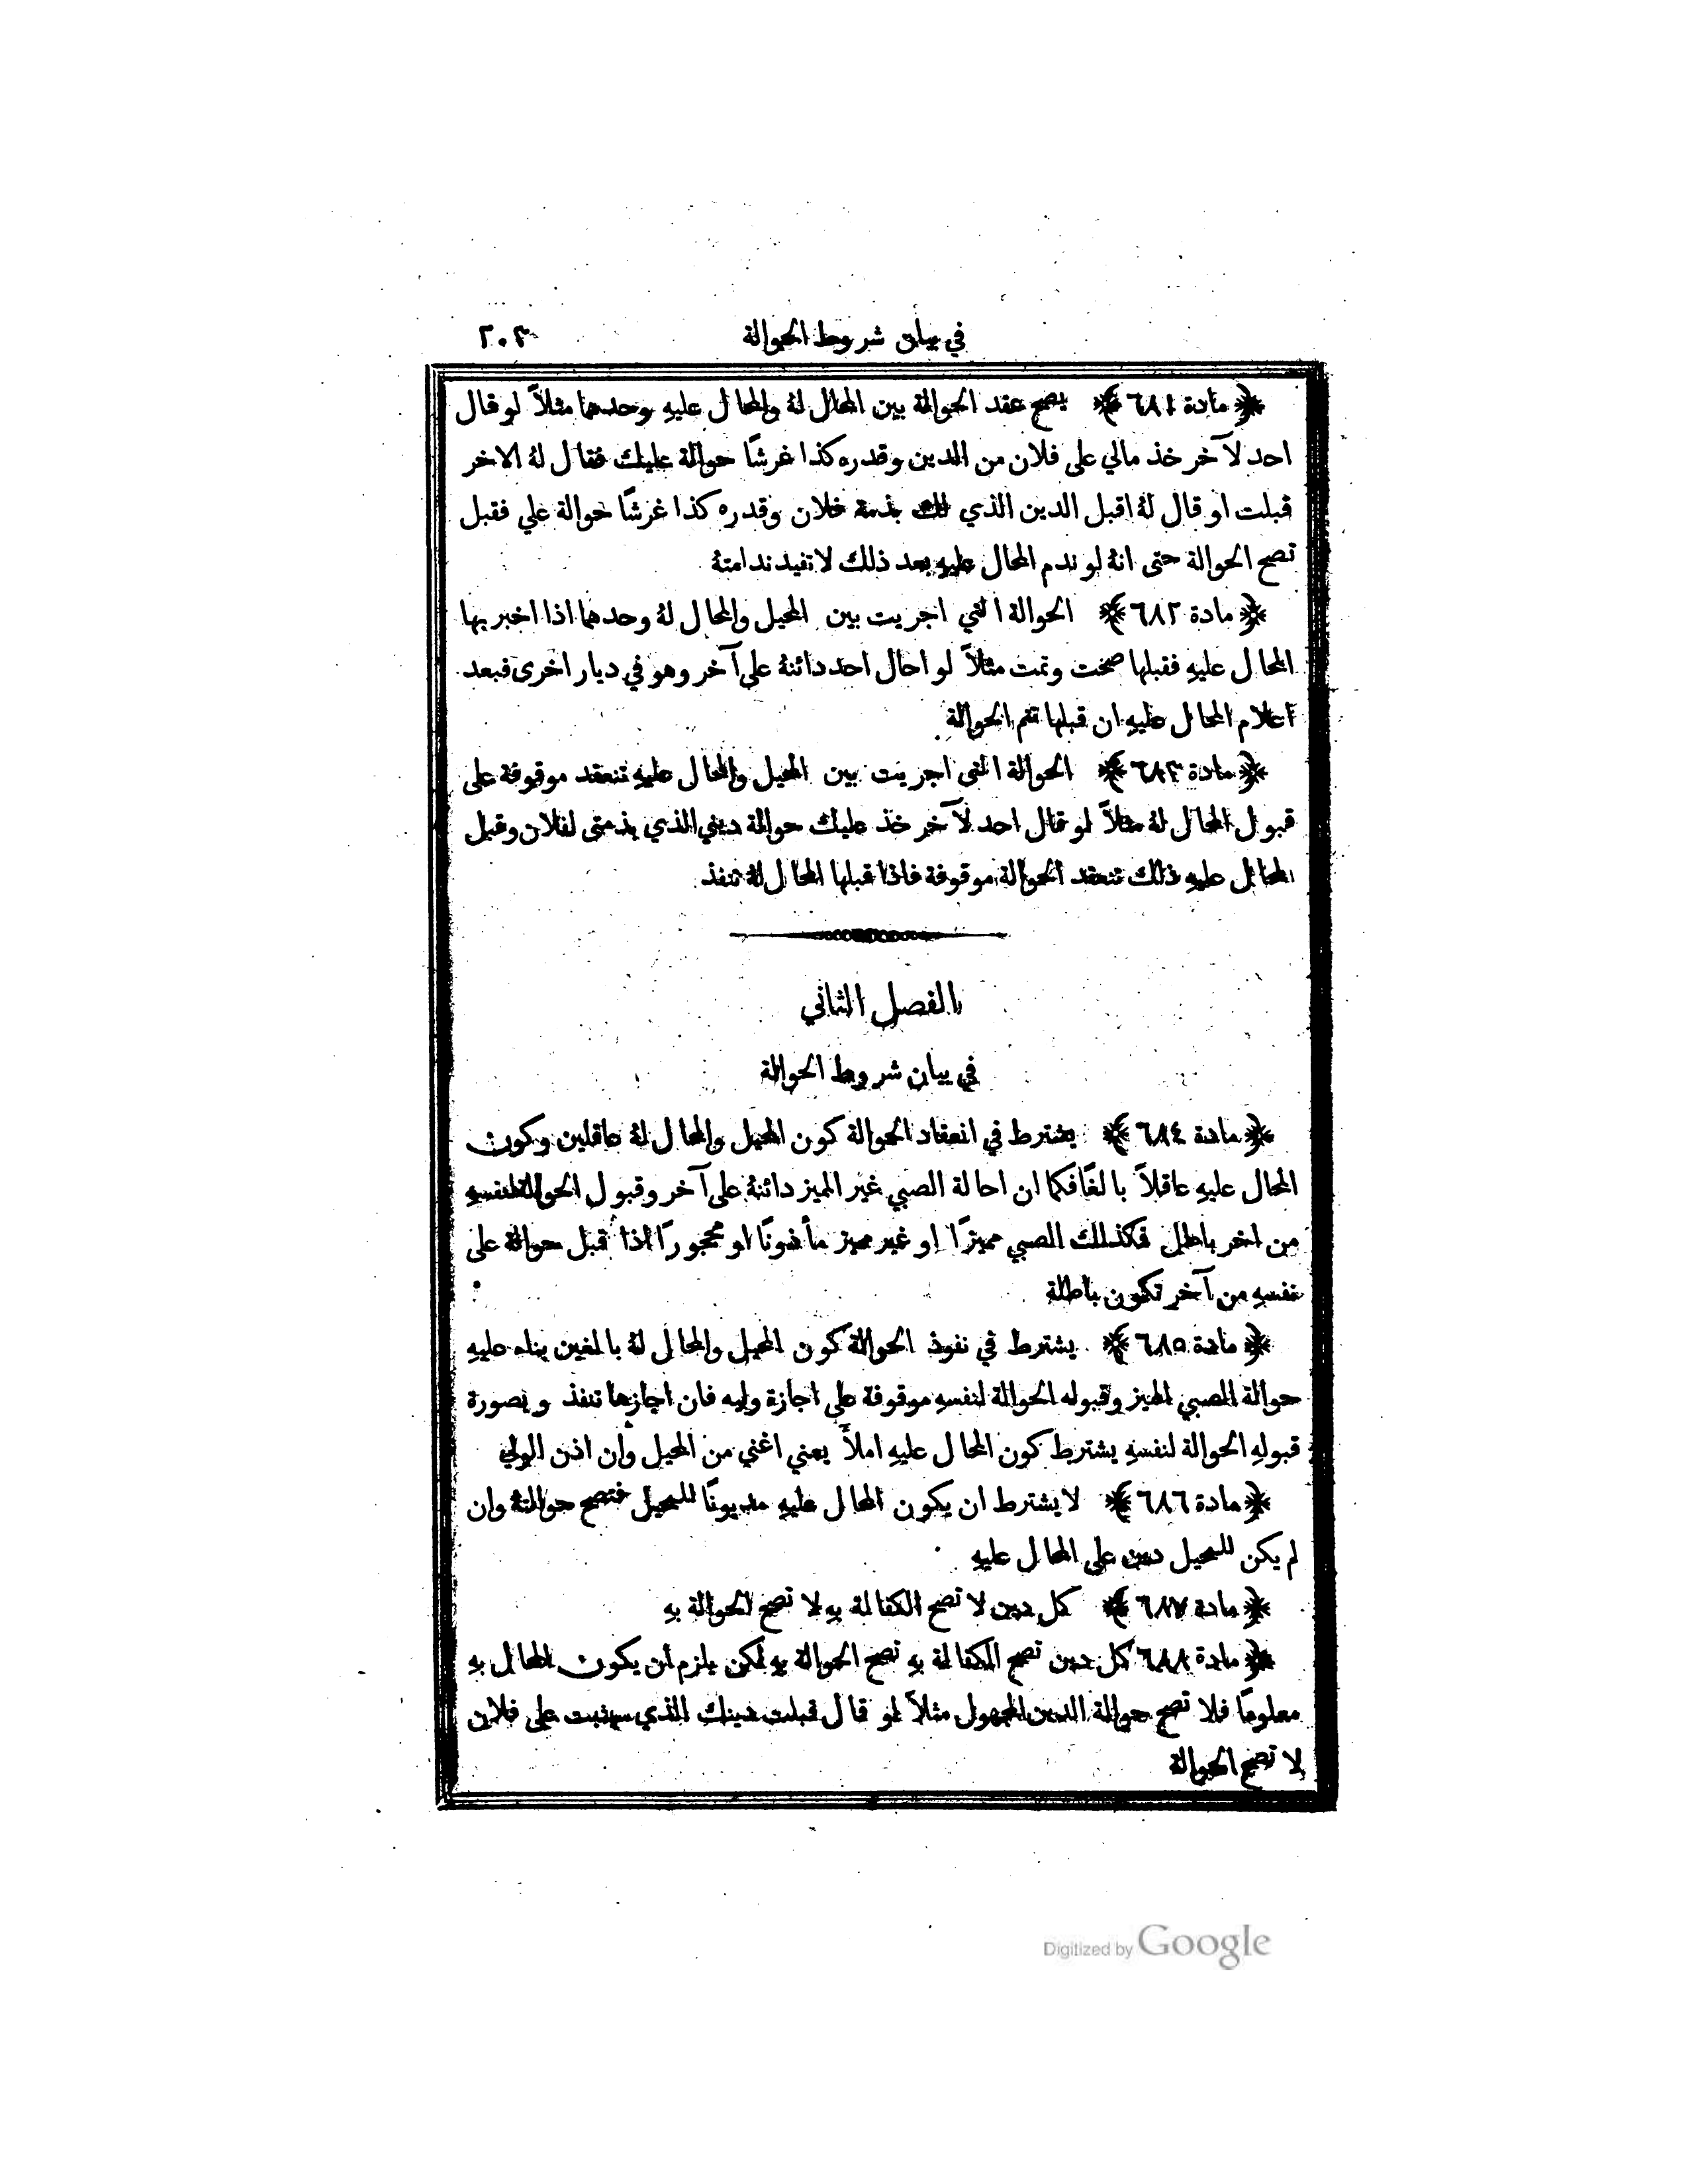 في بيان شروط الحوالة ٢٠٣
﴿ مادة ٦٨١ ﴾ يصح عقد الحوالة بين المحال لهُ والمحال عليهِ وحدهما مثلاً لو قال
احد لآخر خذ مالي على فلان من الدين وقدره كذا غرشًا حوالة عليك فقال لهُ الاخر
قبلت او قال لهُ اقبل الدين الذي لك بذمة فلان وقدره كذا غرشًا حوالة علي فقبل
تصح الحوالة حتى انهُ لو ندم المحال عليهِ بعد ذلك لا تفيد ندامتهُ
﴿ مادة ٦٨٢ ﴾ الحوالة التي اجريت بين المحيل والمحال لهُ وحدهما اذا اخبر بها
المحال عليهِ فقبلها صحت وتمت مثلاً لو احال احد دائنهُ على آخر وهو في ديار اخرى فبعد
اعلام المحال عليهِ ان قبلها تتم الحوالة
﴿ مادة ٦٨٣ ﴾ الحوالة التي اجريت بين المحيل والمحال عليهِ تنعقد موقوفة على
قبول المحال لهُ مثلاً لو قال احد لآخر خذ عليك حوالة ديني الذي بذمتي لفلان وقبل
المحال عليهِ ذلك تنعقد الحوالة موقوفة فاذا قبلها المحال لهُ تنفذ
الفصل الثاني
في بيان شروط الحوالة
﴿ مادة ٦٨٤ ﴾ يشترط في انعقاد الحوالة كون المحيل والمحال لهُ عاقلين وكون
المحال عليهِ عاقلاً بالغًا فكما ان احالة الصبي غير المميز دائنهُ على آخر وقبول الحوالة لنفسهِ
من اخر باطل فكذلك الصبي مميزًا او غير مميز مأذونًا او محجورًا اذا قبل حوالة على
نفسهِ من آخر تكون باطلة
﴿ مادة ٦٨٥ ﴾ يشترط في نفوذ الحوالة كون المحيل والمحال لهُ بالغين بناء عليهِ
حوالة الصبي المميز وقبوله الحوالة لنفسهِ موقوفة على اجازة وليه فان اجازها تنفذ وبصورة
قبولهِ الحوالة لنفسهِ يشترط كون المحال عليهِ املأَ يعني اغني من المحيل وأن اذن الولي
﴿ مادة ٦٨٦ ﴾ لا يشترط ان يكون المحال عليهِ مديونًا للمحيل فتصح حوالتهُ وان
لم يكن للمحيل دين على المحال عليهِ
﴿ مادة ٦٨٧ ﴾ كل دين لا تصح الكفالة بهِ لا تصح الحوالة بهِ
﴿ مادة ٦٨٨ كل دين تصح الكفالة بهِ تصح الحوالة بهِ لكن يلزم أن يكون المحال بهِ
معلومًا فلا تصح حوالة الدين المجهول مثلاً لو قال قبلت دينك الذي سيثبت على فلان
لا تصح الحوالة
Digitized by Google